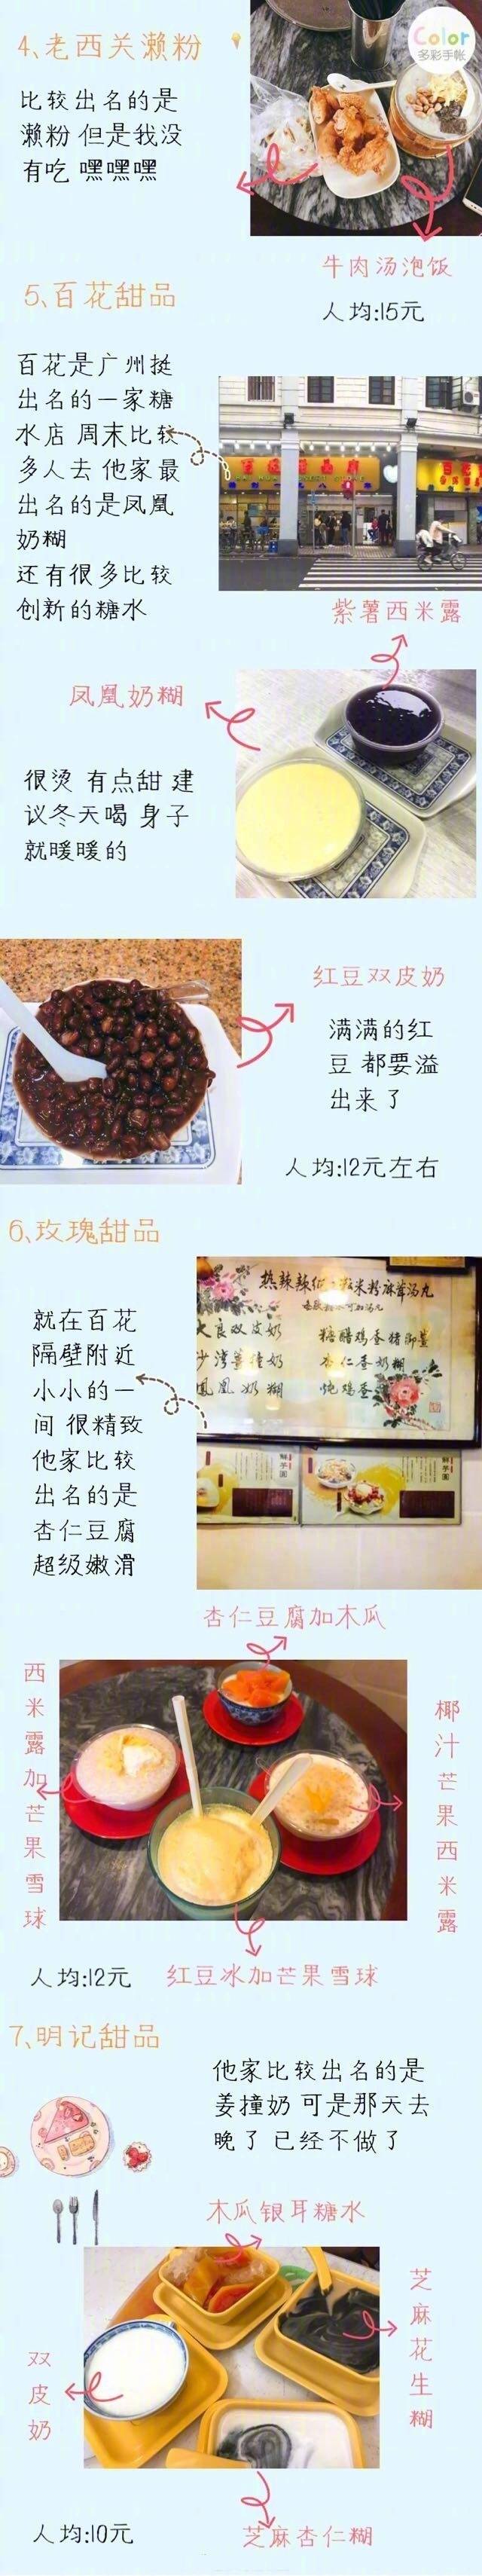 4、老西关濑粉
Color
多彩手帐
比较出名的是
濑粉 但是我没
有吃 嘿嘿嘿
牛肉汤泡饭
人均:15元
5、百花甜品
百花是广州挺
出名的一家糖
水店 周末比较
多人去 他家最
出名的是凤凰
奶糊
还有很多比较
创新的糖水
百花甜品
紫薯西米露
凤凰奶糊
很烫 有点甜 建
议冬天喝 身子
就暖暖的
红豆双皮奶
满满的红
豆 都要溢
出来了
人均:12元左右
6、玫瑰甜品
就在百花
隔壁附近
小小的一
间 很精致
他家比较
出名的是
杏仁豆腐
超级嫩滑
大良双皮奶
糖醋鸡蛋猪脚姜
沙湾姜撞奶
杏仁香奶糊
凤凰奶糊
炖鸡蛋
鲜芋圆
鲜芋圆
杏仁豆腐加木瓜
西米露加芒果雪球
椰汁芒果西米露
人均:12元
红豆冰加芒果雪球
7、明记甜品
他家比较出名的是
姜撞奶 可是那天去
晚了 已经不做了
木瓜银耳糖水
芝麻花生糊
双皮奶
人均:10元
芝麻杏仁糊